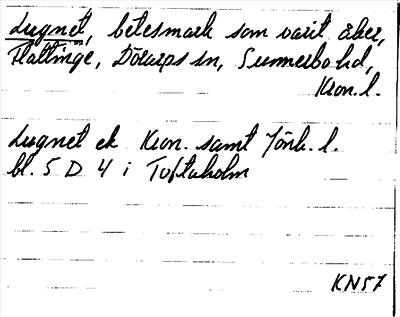 Lugnet, betesmark som varit åker,
Flattinge, Dörarps sn, Sunnerbo hd,
Kron. l.
Lugnet ek Kron. samt Jönk. l.
bl. 5 D 4 i Toftaholm
KN57